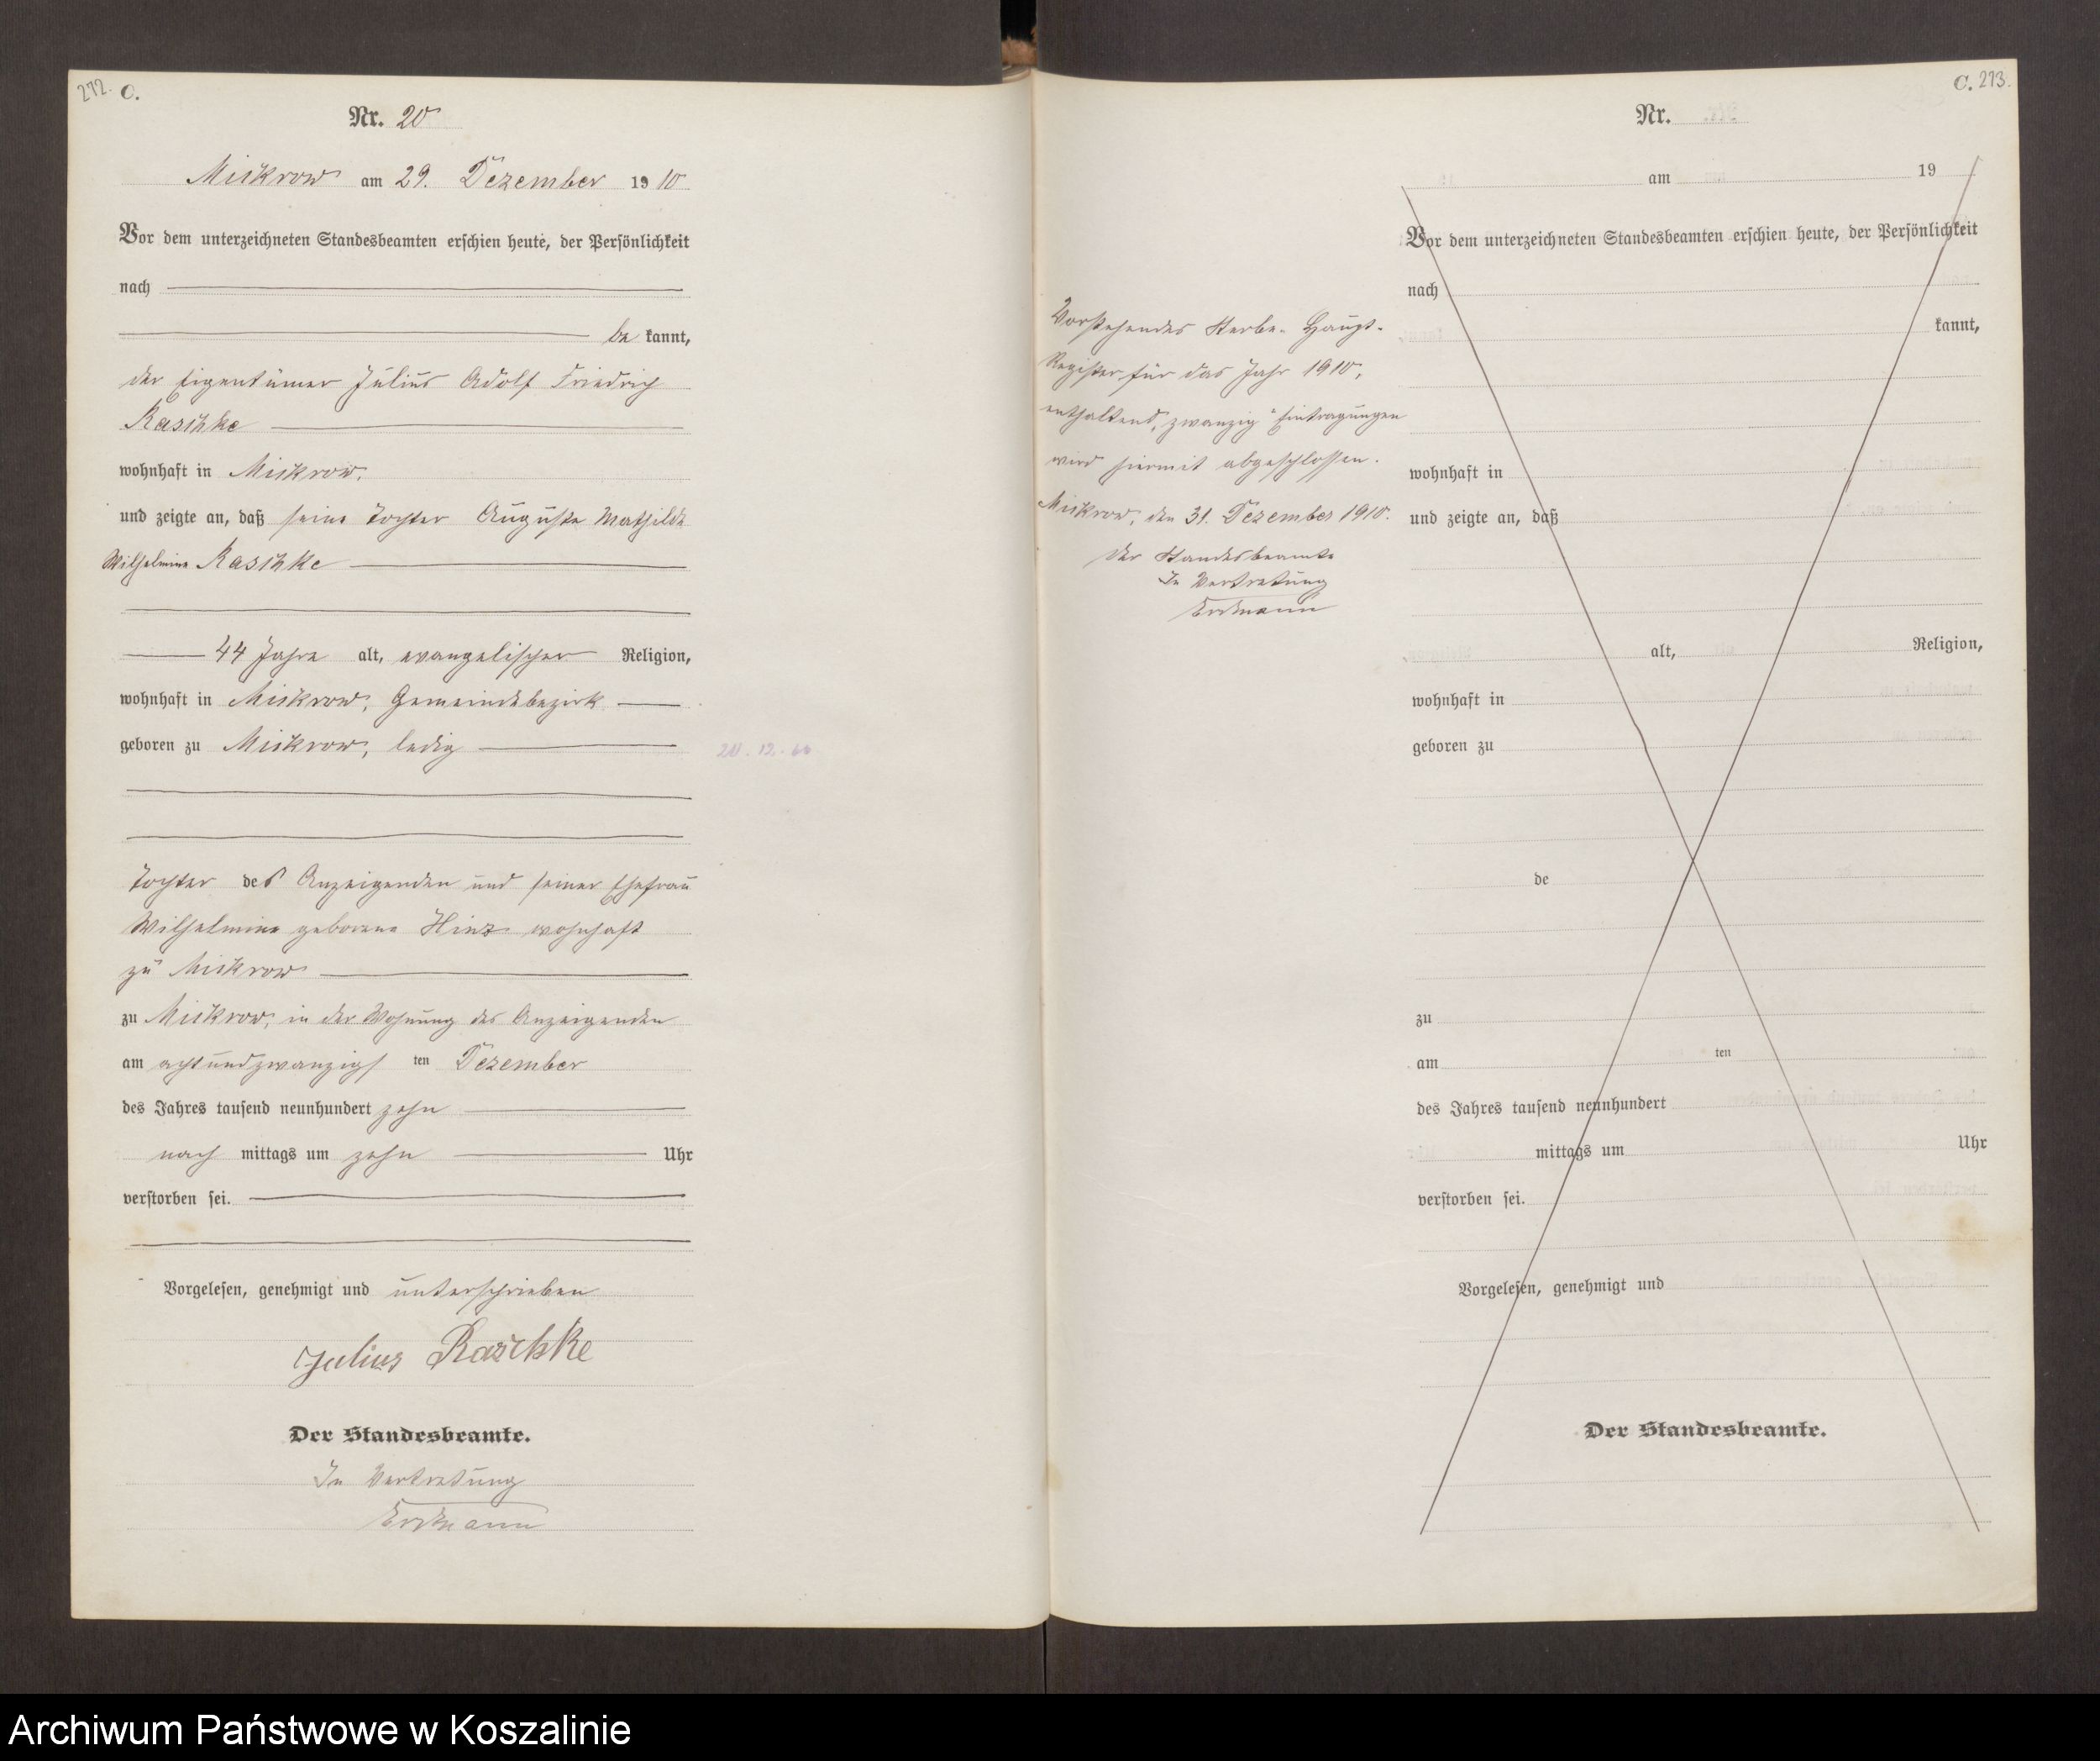 272. C.
Nr. 20
Mickrow am 29. Dezember 1910
Vor dem unterzeichneten Standesbeamten erschien heute, der Persönlichkeit
nach
be kannt,
der Eigentümer Julius Adolf Friedrich
Raschke
wohnhaft in Mickrow,
und zeigte an, daß seine Tochter Auguste Mathilde
Wilhelmine Raschke
44 Jahre alt, evangelischer Religion,
wohnhaft in Mickrow, Gemeindebezirk
geboren zu Mickrow, ledig
Tochter des Anzeigenden und seiner Ehefrau
Wilhelmine geborene Hinz wohnhaft
zu Mickrow
zu Mickrow, in der Wohnung des Anzeigenden
am achtundzwanzigs ten Dezember
des Jahres tausend neunhundert zehn
nach mittags um zehn Uhr
verstorben sei.
Vorgelesen, genehmigt und unterschrieben
Julius Raschke
Der Standesbeamte.
In Vertretung
Erdmann
Vorstehendes Sterbe-Haupt-
Register für das Jahr 1910,
enthaltend "zwanzig" Eintragungen
wird hiermit abgeschlossen.
Mickrow, den 31. Dezember 1910.
Der Standesbeamte
In Vertretung
Erdmann
C. 273.
Nr.
am 19
Vor dem unterzeichneten Standesbeamten erschien heute, der Persönlichkeit
nach
kannt,
wohnhaft in
und zeigte an, daß
alt, Religion,
wohnhaft in
geboren zu
de
zu
am ten
des Jahres tausend neunhundert
mittags um Uhr
verstorben sei.
Vorgelesen, genehmigt und
Der Standesbeamte.
Archiwum Państwowe w Koszalinie